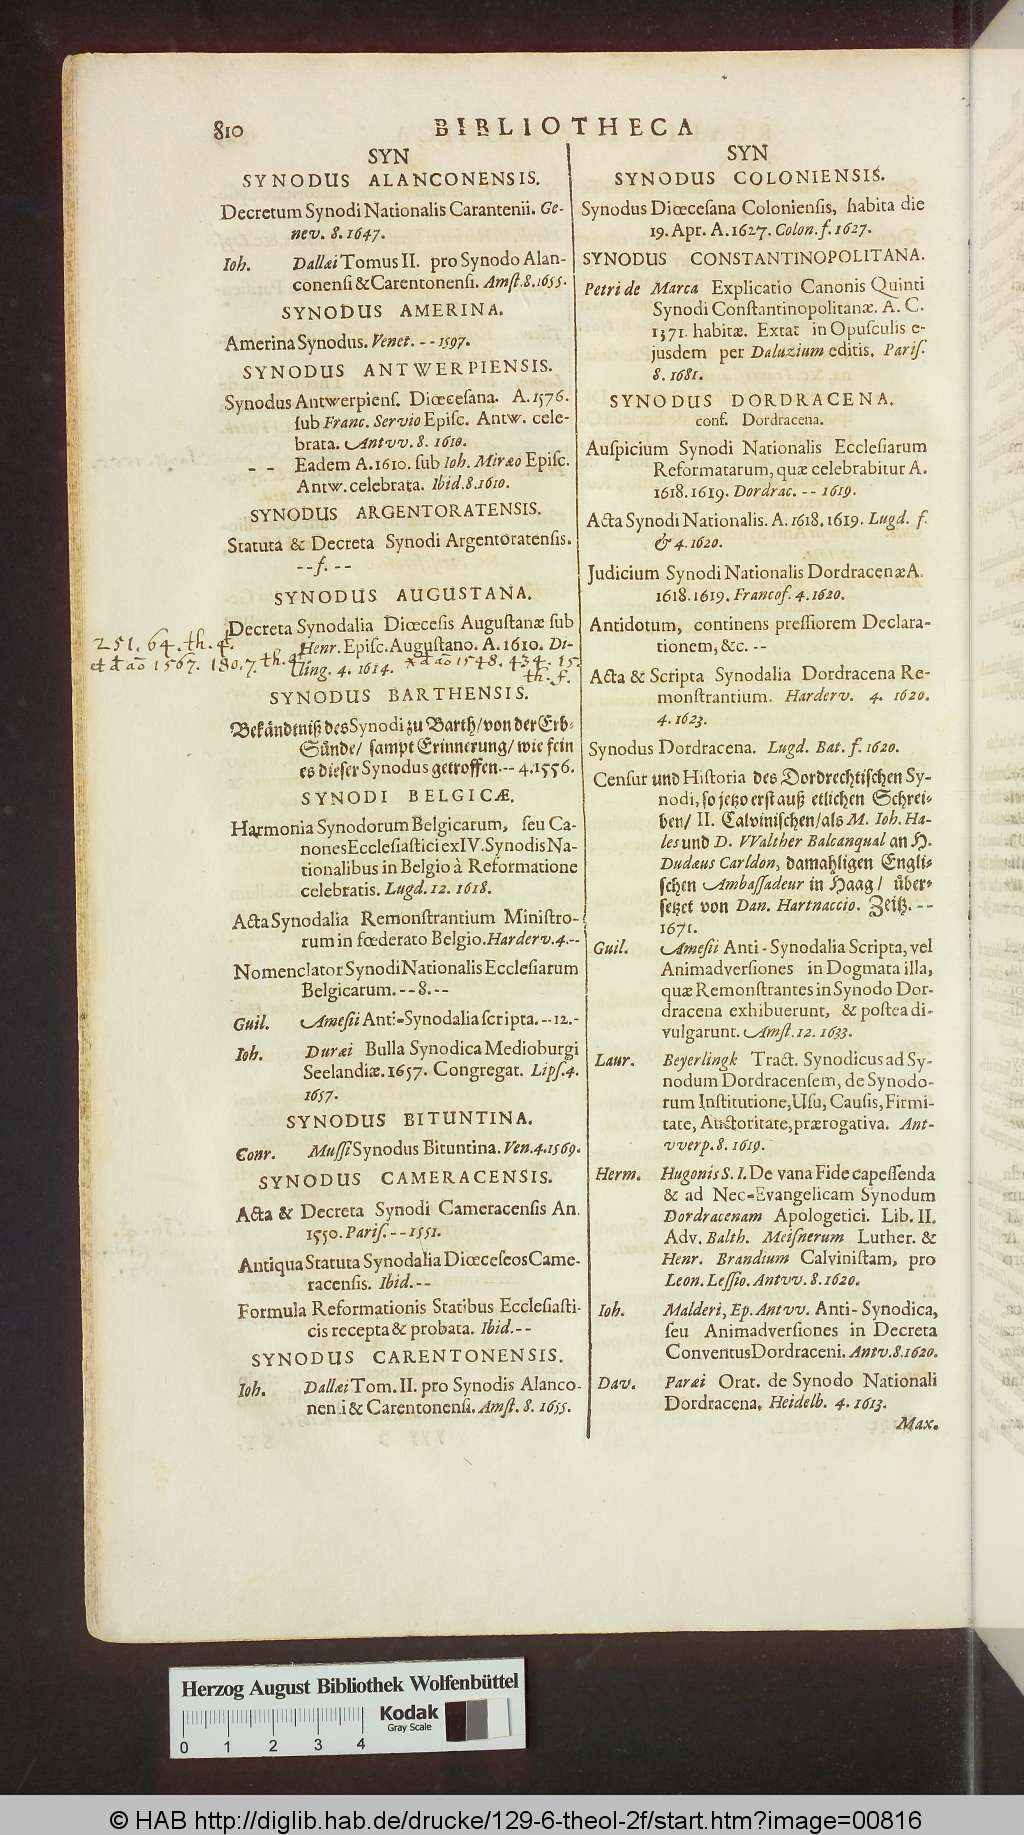 810
BIBLIOTHECA
SYN
SYNODUS ALANCONENSIS.
Decretum Synodi Nationalis Carantenii. Ge-
nev. 8. 1647.
Ioh. Dallæi Tomus II. pro Synodo Alan-
conensi & Carentonensi. Amst. 8. 1655.
SYNODUS AMERINA.
Amerina Synodus. Venet. -- 1597.
SYNODUS ANTWERPIENSIS.
Synodus Antwerpiens. Diœcesana. A. 1576.
sub Franc. Servio Episc. Antw. cele-
brata. Antvv. 8. 1610.
-- Eadem A. 1610. sub Ioh. Miræo Episc.
Antw. celebrata. Ibid. 8. 1610.
SYNODUS ARGENTORATENSIS.
Statuta & Decreta Synodi Argentoratensis.
-- f. --
SYNODUS AUGUSTANA.
Decreta Synodalia Diœcesis Augustanæ sub
251. 64. th. 4.
Henr. Episc. Augustano. A. 1610. Di-
ao 1567. 180. 7. th. 4.
ling. 4. 1614.
ao 1548. 434. 15.
th. f.
SYNODUS BARTHENSIS.
Bekändtniß des Synodi zu Barth/ von der Erb-
Sünde/ sampt Erinnerung/ wie fein
es dieser Synodus getroffen. -- 4. 1556.
SYNODI BELGICÆ.
Harmonia Synodorum Belgicarum, seu Ca-
nones Ecclesiastici ex IV. Synodis Na-
tionalibus in Belgio à Reformatione
celebratis. Lugd. 12. 1618.
Acta Synodalia Remonstrantium Ministro-
rum in fœderato Belgio. Harderv. 4. --
Nomenclator Synodi Nationalis Ecclesiarum
Belgicarum. -- 8. --
Guil. Amesii Anti-Synodalia scripta. -- 12. -
Ioh. Duræi Bulla Synodica Medioburgi
Seelandiæ. 1657. Congregat. Lips. 4.
1657.
SYNODUS BITUNTINA.
Conr. Mussi Synodus Bituntina. Ven. 4. 1569.
SYNODUS CAMERACENSIS.
Acta & Decreta Synodi Cameracensis An.
1550. Paris. -- 1551.
Antiqua Statuta Synodalia Diœceseos Came-
racensis. Ibid. --
Formula Reformationis Statibus Ecclesiasti-
cis recepta & probata. Ibid. --
SYNODUS CARENTONENSIS.
Ioh. Dallæi Tom. II. pro Synodis Alanco-
nen i & Carentonensi. Amst. 8. 1655.
SYN
SYNODUS COLONIENSIS.
Synodus Diœcesana Coloniensis, habita die
19. Apr. A. 1627. Colon. f. 1627.
SYNODUS CONSTANTINOPOLITANA.
Petri de Marca Explicatio Canonis Quinti
Synodi Constantinopolitanæ. A. C.
1371. habitæ. Extat in Opusculis e-
jusdem per Daluzium editis. Paris.
8. 1681.
SYNODUS DORDRACENA.
conf. Dordracena.
Auspicium Synodi Nationalis Ecclesiarum
Reformatarum, quæ celebrabitur A.
1618. 1619. Dordrac. -- 1619.
Acta Synodi Nationalis. A. 1618. 1619. Lugd. f.
& 4. 1620.
Judicium Synodi Nationalis Dordracenæ A.
1618. 1619. Francof. 4. 1620.
Antidotum, continens pressiorem Declara-
tionem, &c. --
Acta & Scripta Synodalia Dordracena Re-
monstrantium. Harderv. 4. 1620.
4. 1623.
Synodus Dordracena. Lugd. Bat. f. 1620.
Censur und Historia des Dordrechtischen Sy-
nodi, so jetzo erst auß etlichen Schrei-
ben/ II. Calvinischen/ als M. Ioh. Ha-
les und D. VValther Balcanqual an H.
Dudæus Carldon, damahligen Engli-
schen Ambassadeur in Haag/ über-
setzet von Dan. Hartnaccio. Zeitz. --
1671.
Guil. Amesii Anti-Synodalia Scripta, vel
Animadversiones in Dogmata illa,
quæ Remonstrantes in Synodo Dor-
dracena exhibuerunt, & postea di-
vulgarunt. Amst. 12. 1633.
Laur. Beyerlingk Tract. Synodicus ad Sy-
nodum Dordracensem, de Synodo-
rum Institutione, Usu, Causis, Firmi-
tate, Auctoritate, prærogativa. Ant-
vverp. 8. 1619.
Herm. Hugonis S. I. De vana Fide capessenda
& ad Nec-Evangelicam Synodum
Dordracenam Apologetici. Lib. II.
Adv. Balth. Meisnerum Luther. &
Henr. Brandium Calvinistam, pro
Leon. Lessio. Antvv. 8. 1620.
Ioh. Malderi, Ep. Antvv. Anti-Synodica,
seu Animadversiones in Decreta
Conventus Dordraceni. Antv. 8. 1620.
Dav. Paræi Orat. de Synodo Nationali
Dordracena. Heidelb. 4. 1613.
Max.
Herzog August Bibliothek Wolfenbüttel
Kodak
Gray Scale
0 1 2 3 4
© HAB http://diglib.hab.de/drucke/129-6-theol-2f/start.htm?image=00816